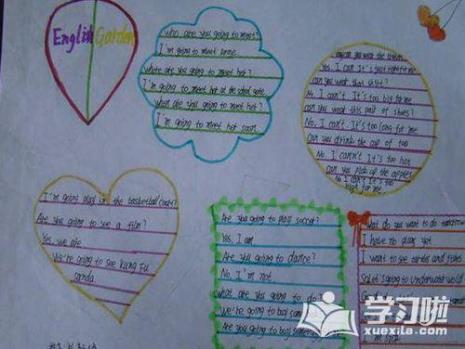 English Garden
Who are you going to meet?
I'm going to meet
Where are you going to meet her?
I'm going to meet her at the school gate.
When are you going to meet her?
I'm going to meet her soon
Can you wear the
Yes, I can. It's just right for me
Can you wear this shirt?
No, I can't. It's too big for me
Can you wear this pair of shoes?
No, I can't. It's too long for me
Can you drink the cup of tea
No, I can't. It's too hot
Can you pick up the apples
No, I can't. It's too
high for me
I'm going play in the basketball
Are you going to see a film?
Yes, we are
We're going to see Kung Fu
panda.
Are you going to play soccer?
Yes, I am
Are you going to dance?
No, I'm not
What are you going to do?
We're going to buy
Are you going to buy something
What do you want to do
I have no plans yet
I want to see turtles and
going to Underwater World
学习啦
xuexila.com